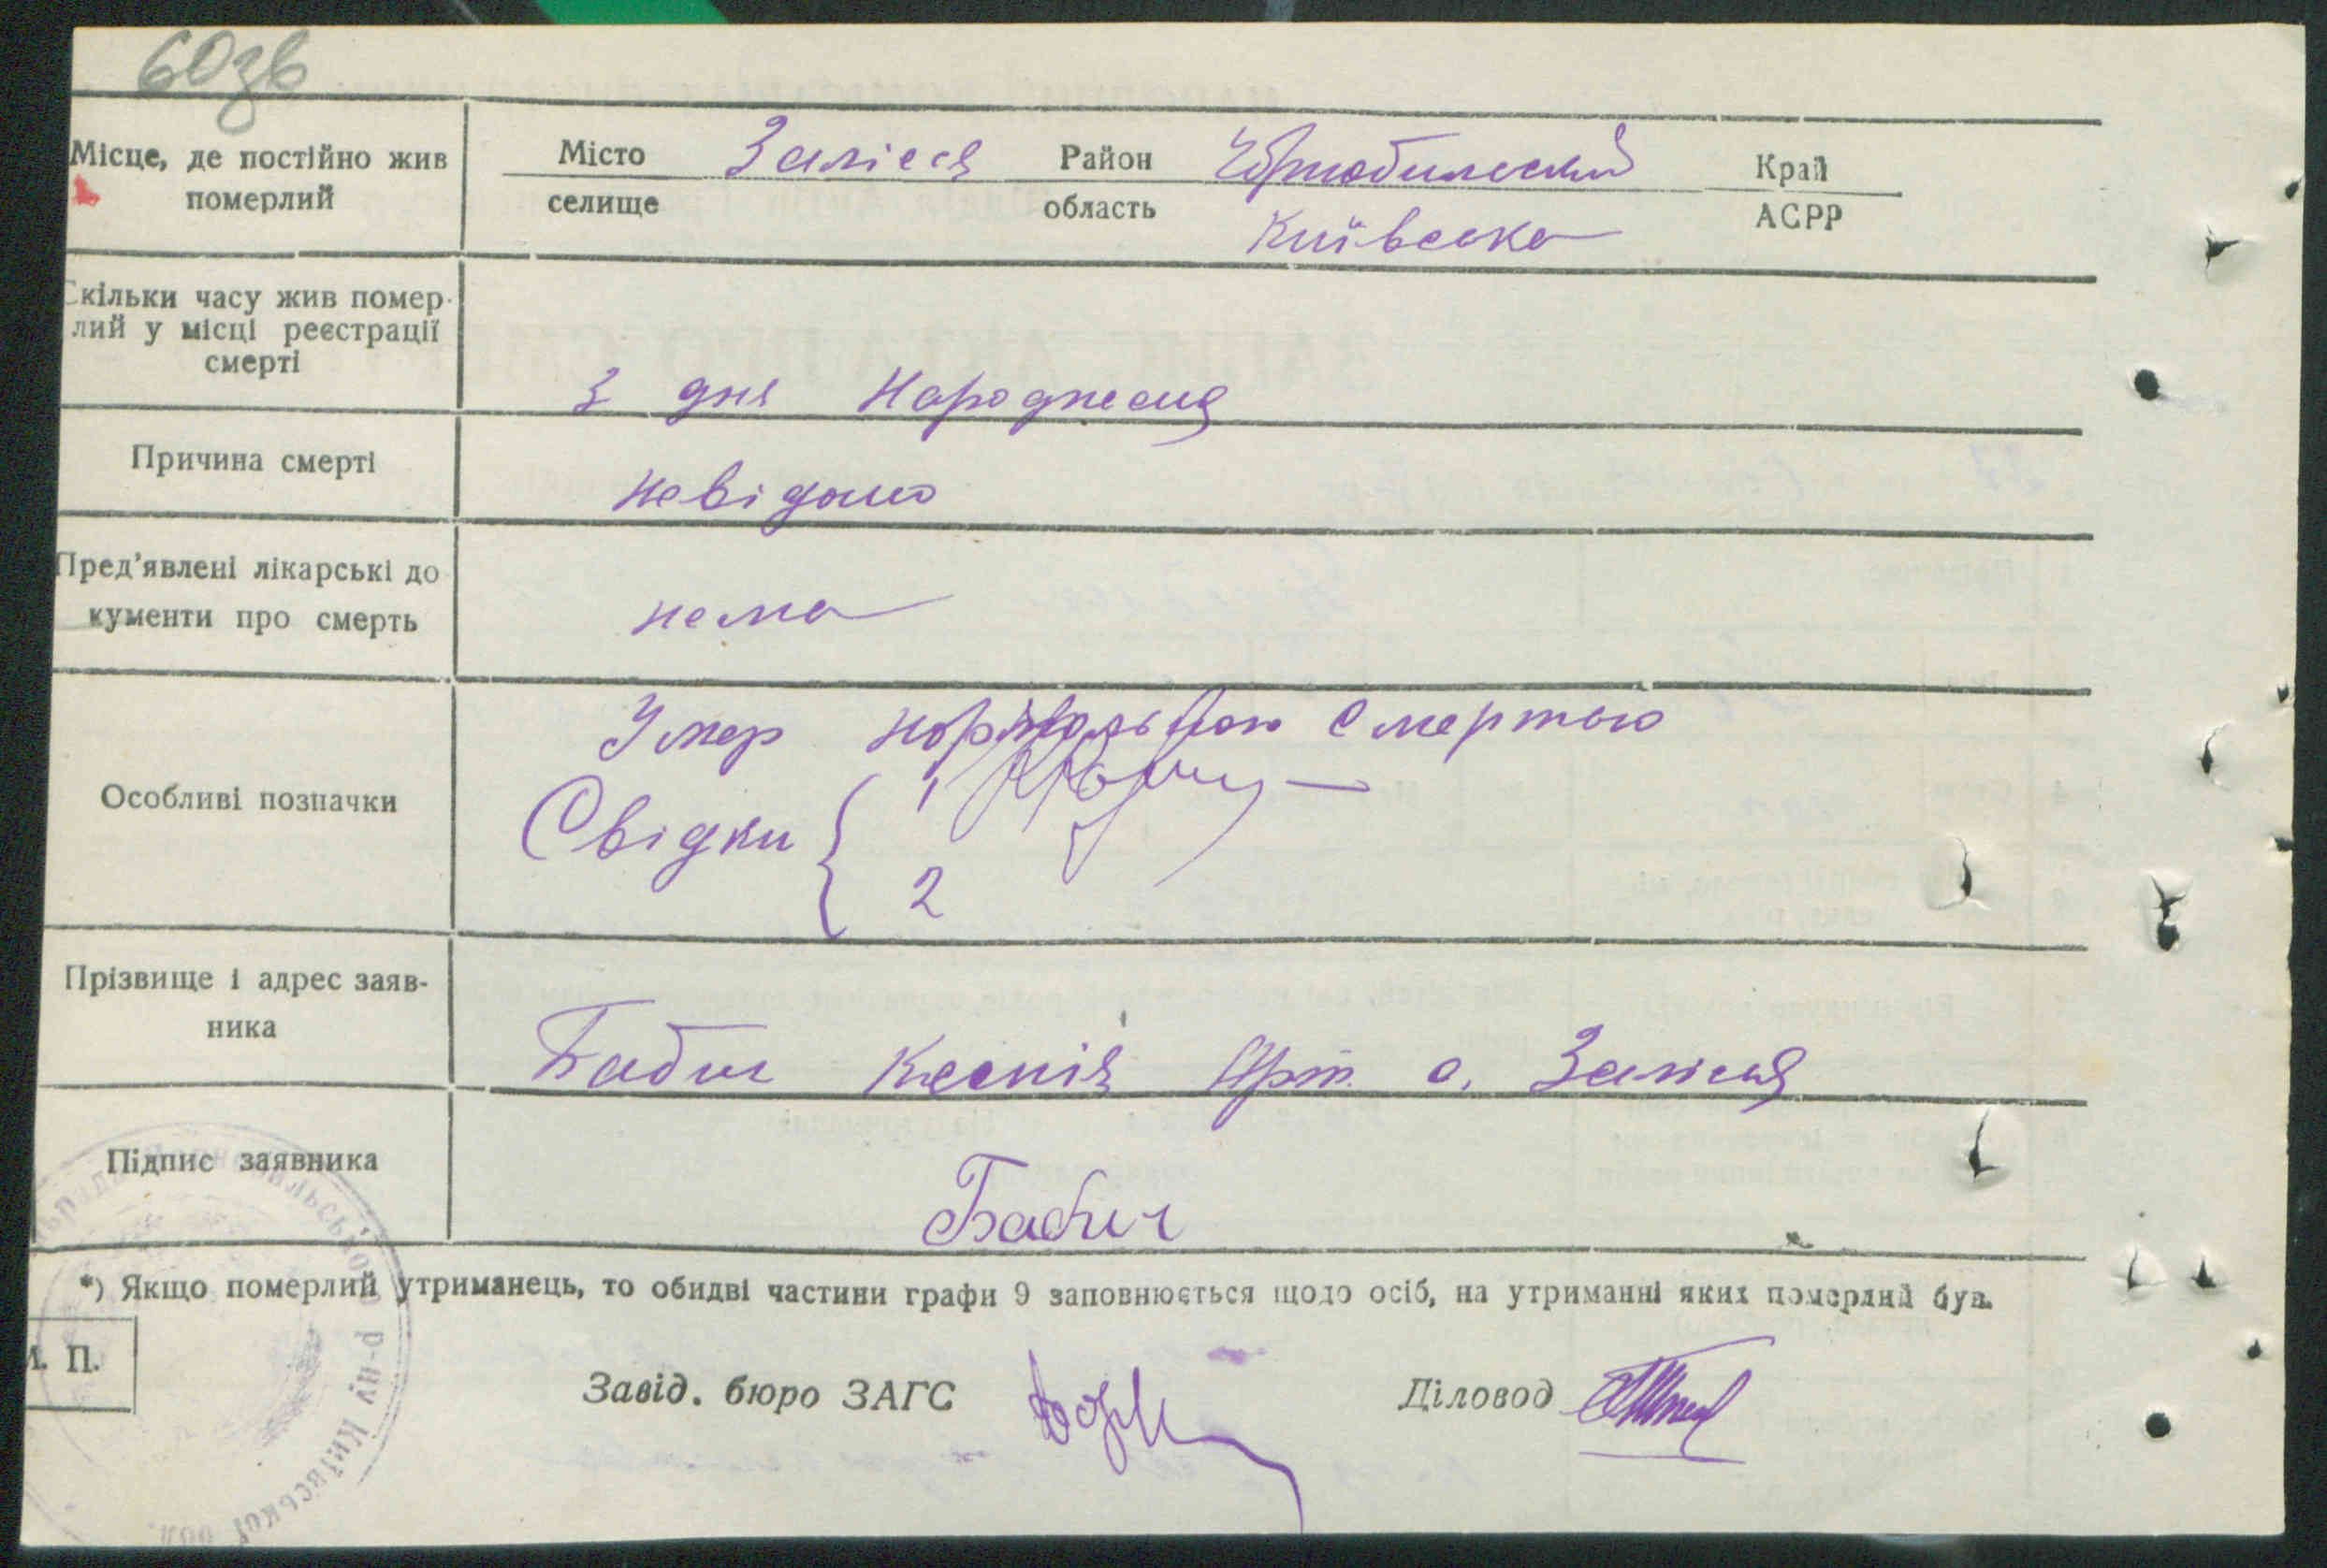 60зв
Місце, де постійно жив
померлий
Місто Залісся Район Чорнобильский Край
селище область Київська АСРР
Скільки часу жив помер-
лий у місці реєстрації
смерті
З дня Народження
Причина смерті
невідомо
Пред'явлені лікарські до
кументи про смерть
нема
Особливі позначки
Умер нормальною смертью
Свідки { 1
2
Прізвище і адрес заяв-
ника
Бабич Ксенія Арт. с. Залісся
Підпис заявника
Бабич
*) Якщо померлий утриманець, то обидві частини графи 9 заповнюється щодо осіб, на утриманні яких померлий був.
М. П.
Завід. бюро ЗАГС
Діловод
р-ну Київської обл.